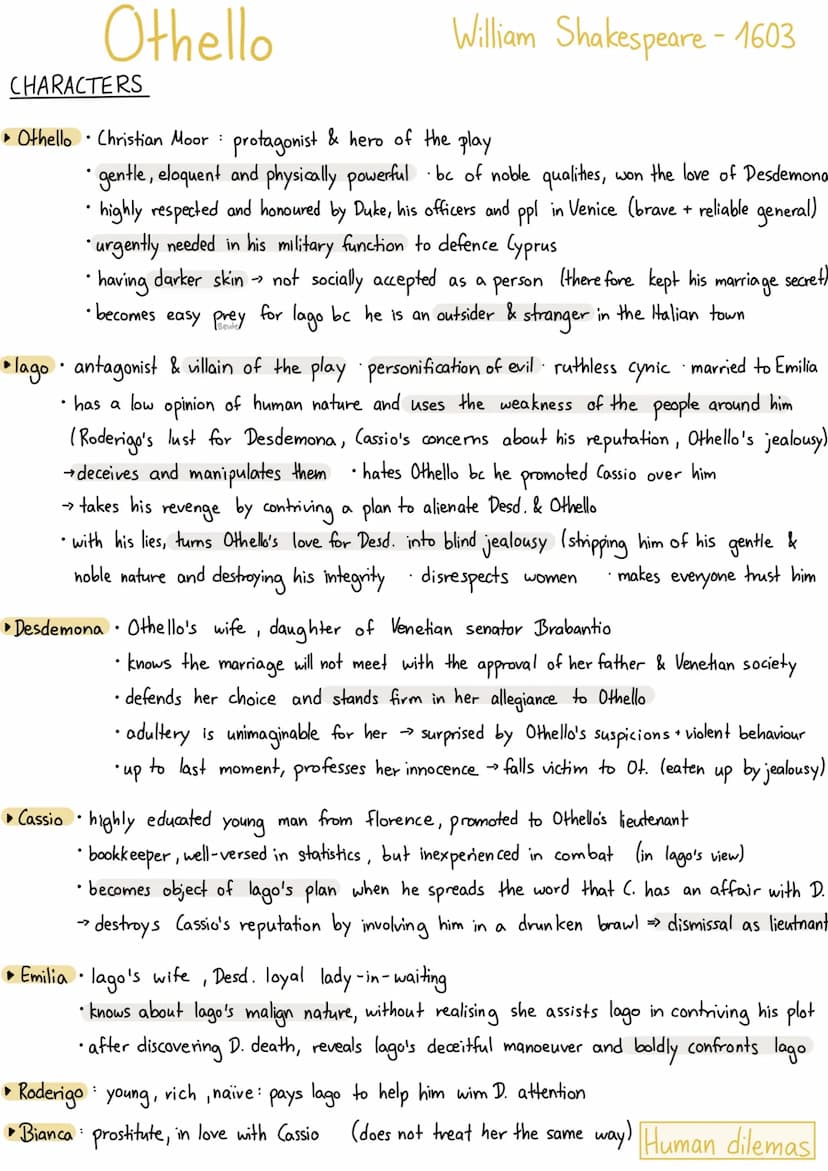 Othello
William Shakespeare - 1603
CHARACTERS
▸ Othello · Christian Moor : protagonist & hero of the play
· gentle, eloquent and physically powerful · bc of noble qualities, won the love of Desdemona
· highly respected and honoured by Duke, his officers and ppl in Venice (brave + reliable general)
· urgently needed in his military function to defence Cyprus
· having darker skin → not socially accepted as a person (therefore kept his marriage secret)
· becomes easy prey for Iago bc he is an outsider & stranger in the Italian town
Beute
▸ Iago · antagonist & villain of the play · personification of evil · ruthless cynic · married to Emilia
· has a low opinion of human nature and uses the weakness of the people around him
(Roderigo's lust for Desdemona, Cassio's concerns about his reputation, Othello's jealousy)
→ deceives and manipulates them · hates Othello bc he promoted Cassio over him
→ takes his revenge by contriving a plan to alienate Desd. & Othello
· with his lies, turns Othello's love for Desd. into blind jealousy (stripping him of his gentle &
noble nature and destroying his integrity · disrespects women · makes everyone trust him
▸ Desdemona · Othello's wife, daughter of Venetian senator Brabantio
· knows the marriage will not meet with the approval of her father & Venetian society
· defends her choice and stands firm in her allegiance to Othello
· adultery is unimaginable for her → surprised by Othello's suspicions + violent behaviour
· up to last moment, professes her innocence → falls victim to Ot. (eaten up by jealousy)
▸ Cassio · highly educated young man from Florence, promoted to Othello's lieutenant
· bookkeeper, well-versed in statistics, but inexperienced in combat (in Iago's view)
· becomes object of Iago's plan when he spreads the word that C. has an affair with D.
→ destroys Cassio's reputation by involving him in a drunken brawl ⇒ dismissal as lieutnant
▸ Emilia · Iago's wife, Desd. loyal lady-in-waiting
· knows about Iago's malign nature, without realising she assists Iago in contriving his plot
· after discovering D. death, reveals Iago's deceitful manoeuver and boldly confronts Iago
▸ Roderigo : young, rich, naïve : pays Iago to help him wim D. attention
▸ Bianca : prostitute, in love with Cassio (does not treat her the same way)
Human dilemas